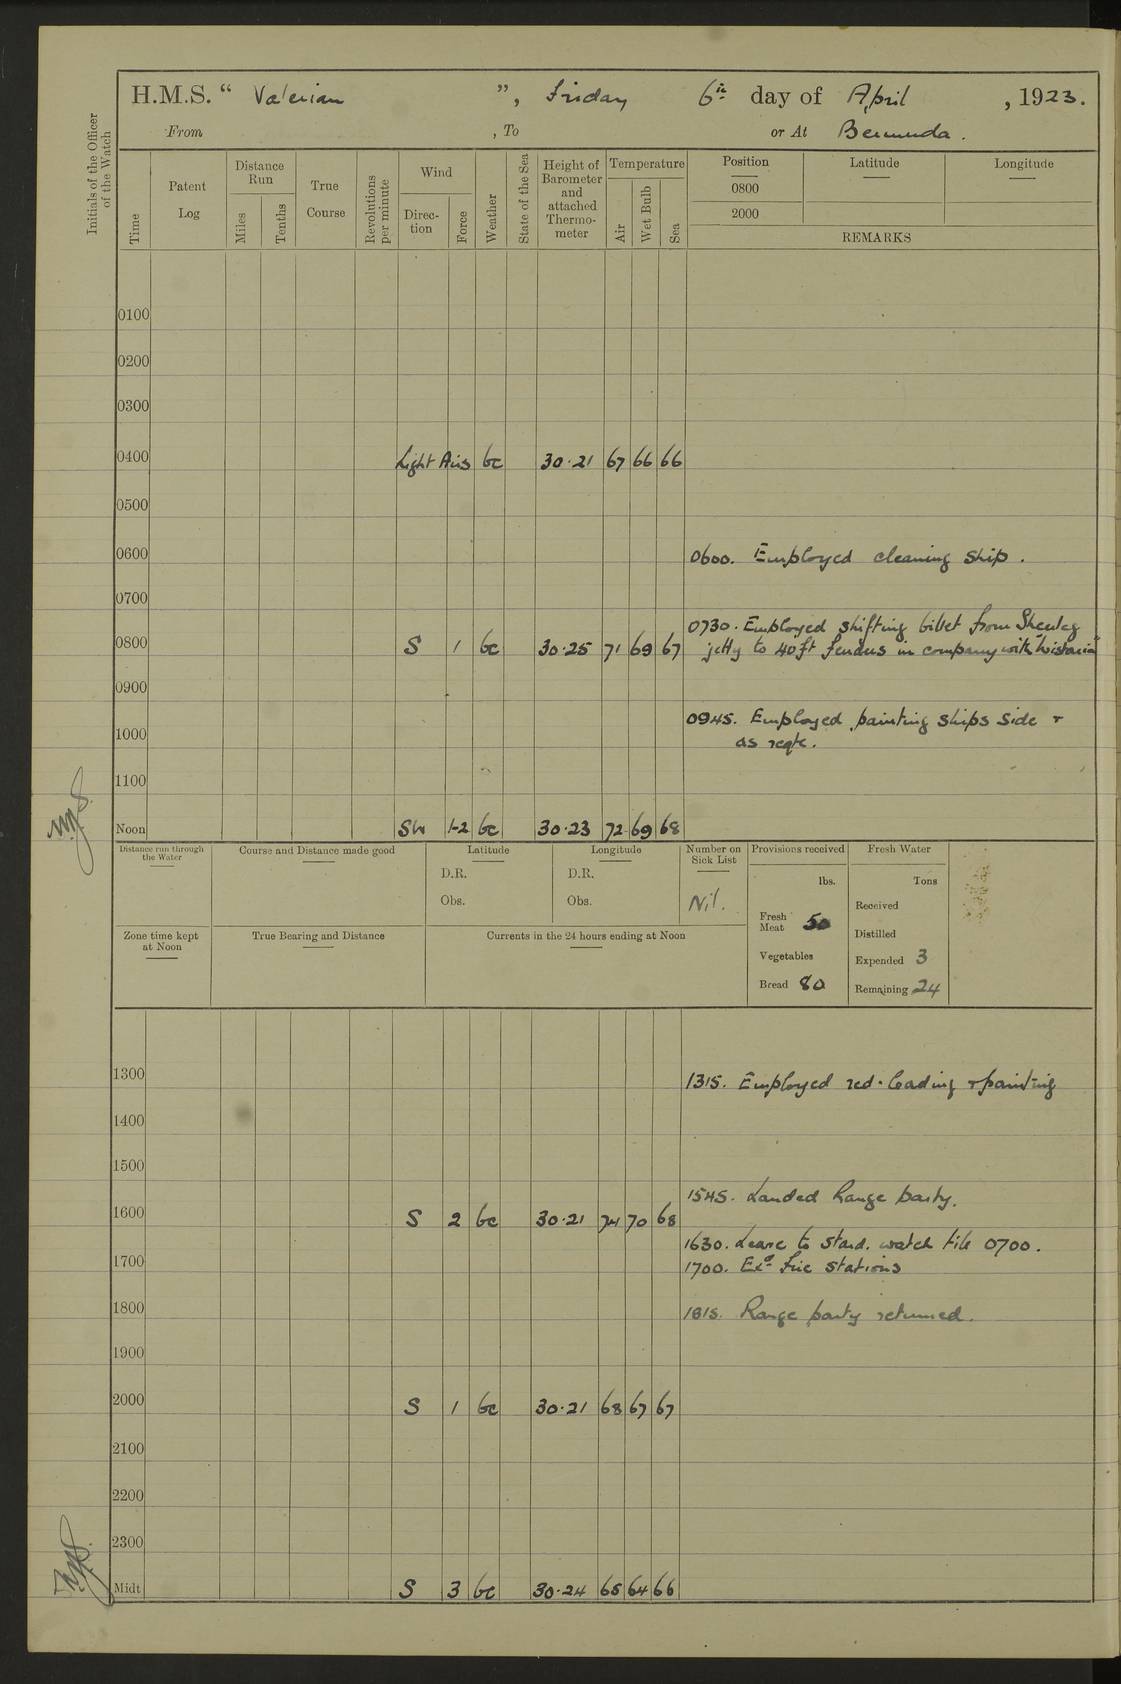 H.M.S. “ Valerian ”, Friday 6th day of April , 1923.
From , To or At Bermuda .
Initials of the Officer of the Watch
Time
Patent Log
Distance Run
Miles
Tenths
True Course
Revolutions per minute
Wind
Direc-tion
Force
Weather
State of the Sea
Height of Barometer and attached Thermo-meter
Temperature
Air
Wet Bulb
Sea
Position Latitude Longitude
0800
2000
REMARKS
0100
0200
0300
0400 Light Airs bc 30·21 67 66 66
0500
0600 0600. Employed cleaning ship .
0700
0730. Employed shifting billet from Sheerleg
0800 S 1 bc 30·25 71 69 67 jetty to 40ft fenders in company with "Wistaria"
0900
0945. Employed painting ships side +
1000 as reqte.
1100
Noon SW 1-2 bc 30·23 72 69 68
Distance run through the Water
Course and Distance made good
Latitude
D.R.
Obs.
Longitude
D.R.
Obs.
Number on Sick List
Nil.
Provisions received
lbs.
Fresh Meat 50
Vegetables
Bread 80
Fresh Water
Tons
Received
Distilled
Expended 3
Remaining 24
Zone time kept at Noon
True Bearing and Distance
Currents in the 24 hours ending at Noon
1300 1315. Employed red-leading + painting
1400
1500
1545. Landed Range party.
1600 S 2 bc 30·21 74 70 68
1630. Leave to Stard. watch till 0700.
1700 1700. Exd. fire stations
1800 1815. Range party returned.
1900
2000 S 1 bc 30·21 68 67 67
2100
2200
2300
Midt S 3 bc 30·24 65 64 66